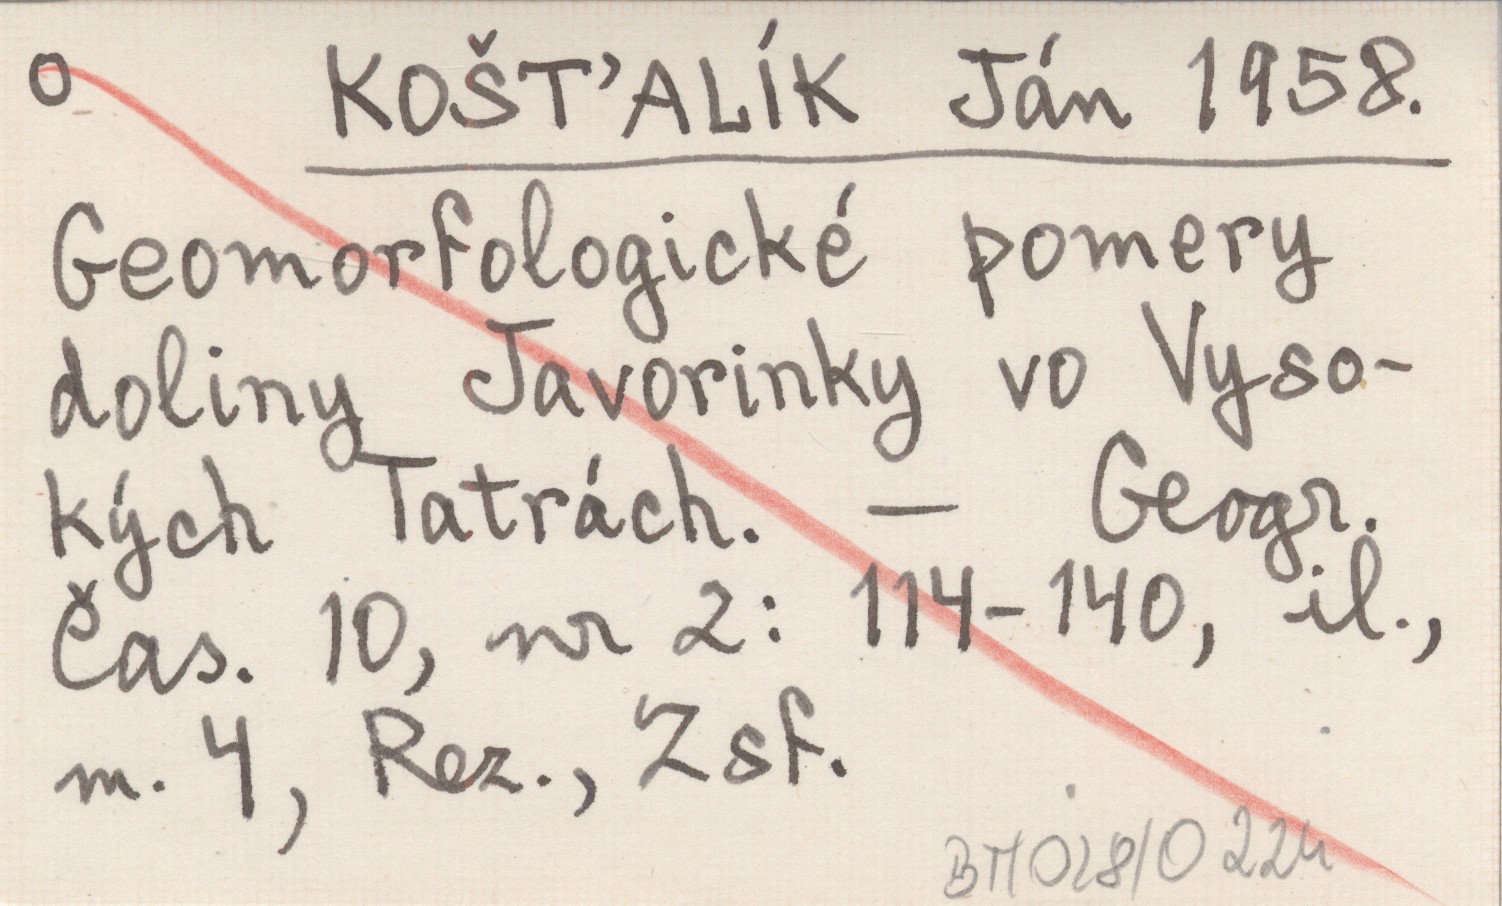 o KOŠT'ALÍK Ján 1958.
Geomorfologické pomery
doliny Javorinky vo Vyso-
kých Tatrách. — Geogr.
Čas. 10, nr 2: 114-140, il.,
m. 4, Rez., Zsf.